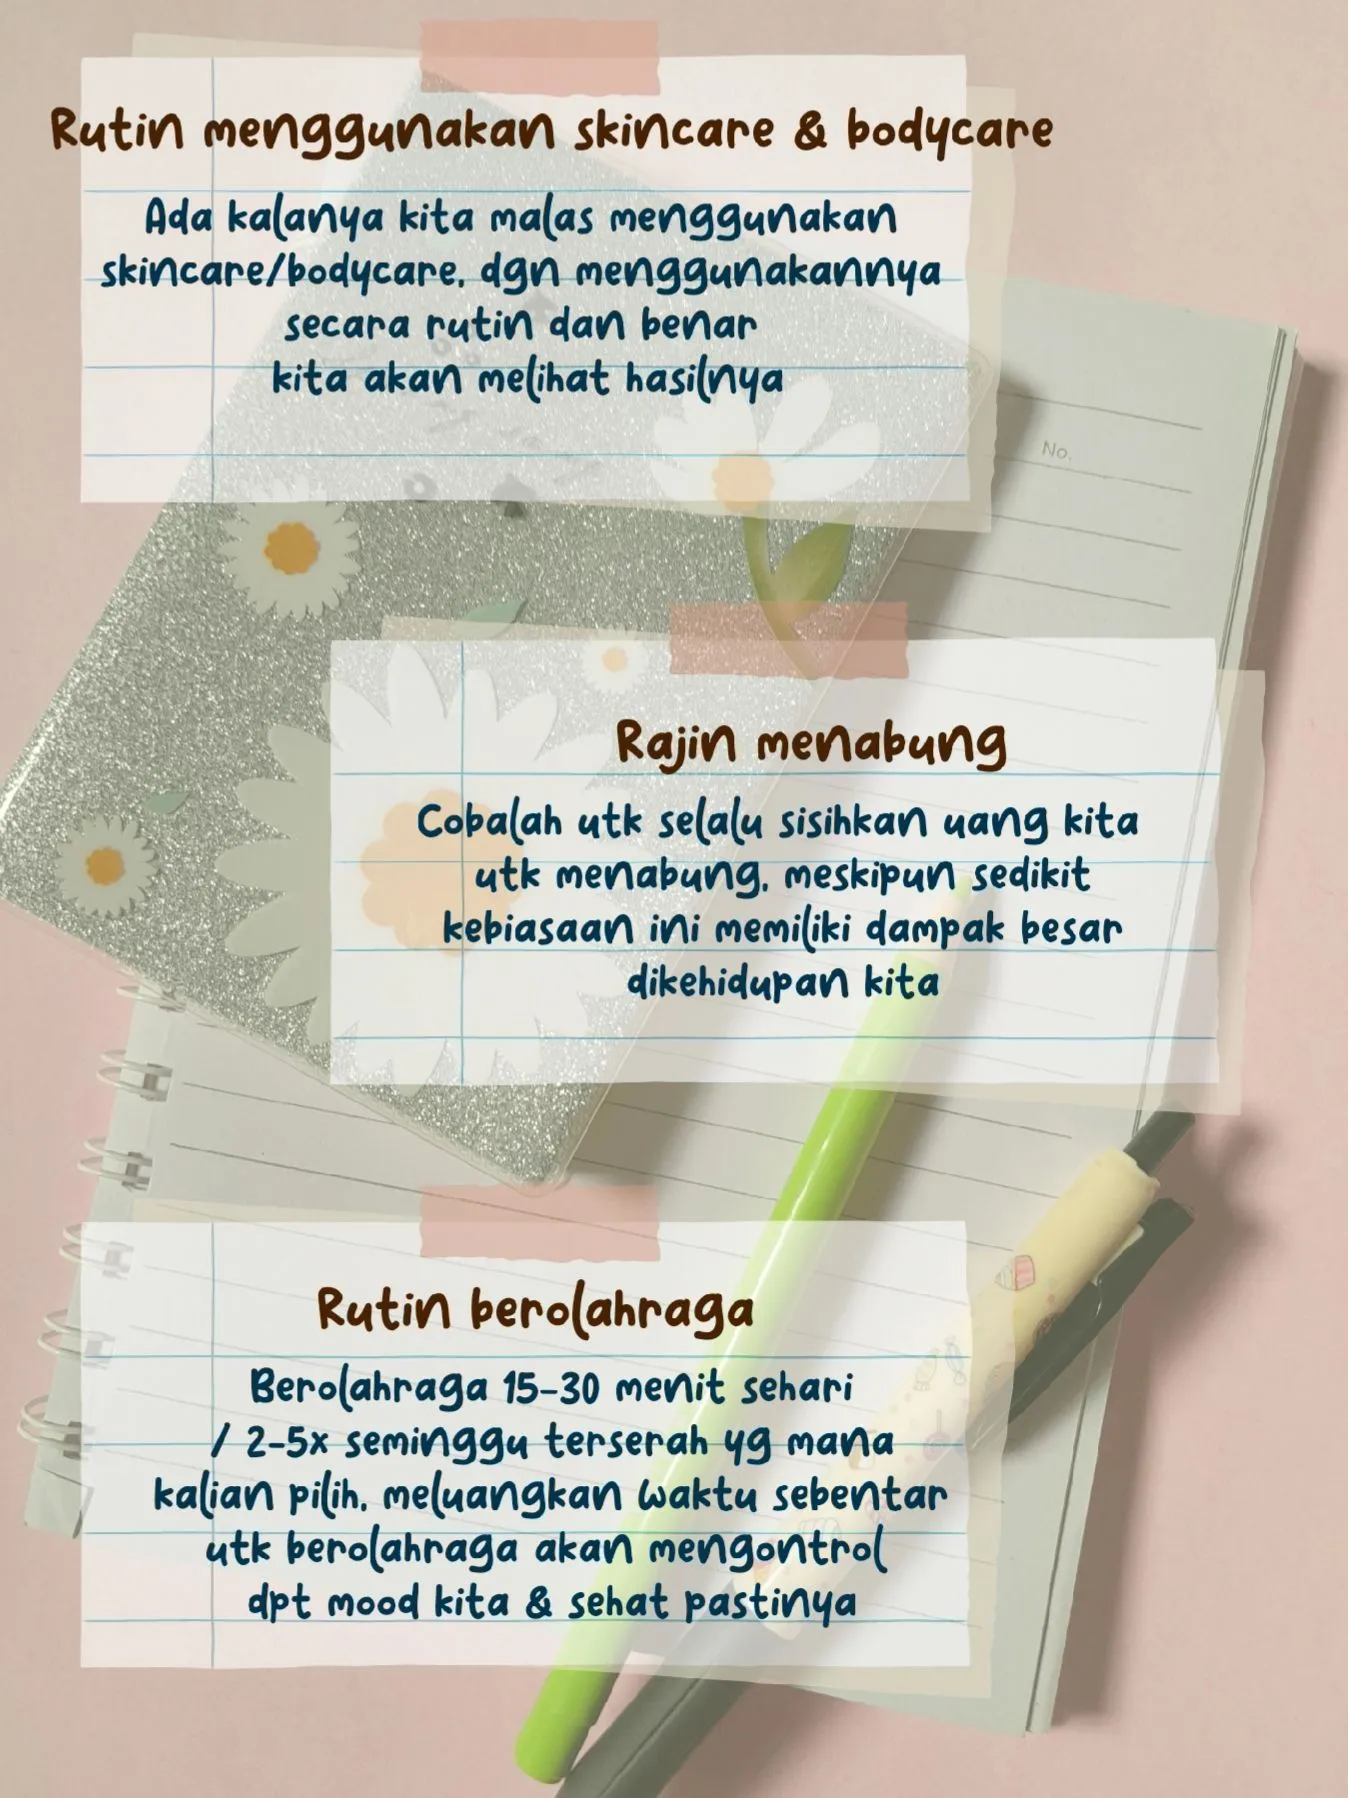 Rutin menggunakan skincare & bodycare
Ada kalanya kita malas menggunakan
skincare/bodycare, dgn menggunakannya
secara rutin dan benar
kita akan melihat hasilnya
No.
Rajin menabung
Cobalah utk selalu sisihkan uang kita
utk menabung, meskipun sedikit
kebiasaan ini memiliki dampak besar
dikehidupan kita
Rutin berolahraga
Berolahraga 15-30 menit sehari
/ 2-5x seminggu terserah yg mana
kalian pilih, meluangkan waktu sebentar
utk berolahraga akan mengontrol
dpt mood kita & sehat pastinya